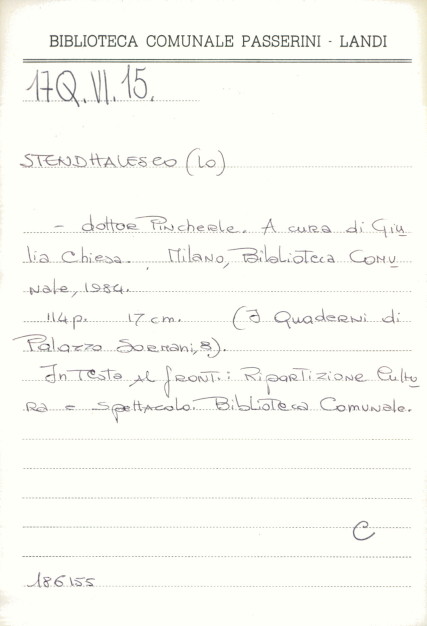 BIBLIOTECA COMUNALE PASSERINI - LANDI
17Q.VI.15.
STENDHALESCO (LO)
- dottor Pincherle. A cura di Giu
lia Chiesa. Milano, Biblioteca Comu
nale, 1984.
114p. 17 cm. (I Quaderni di
Palazzo Sormani, 8).
In testa al front.: Ripartizione Cultu
ra e spettacolo. Biblioteca Comunale.
C
186155